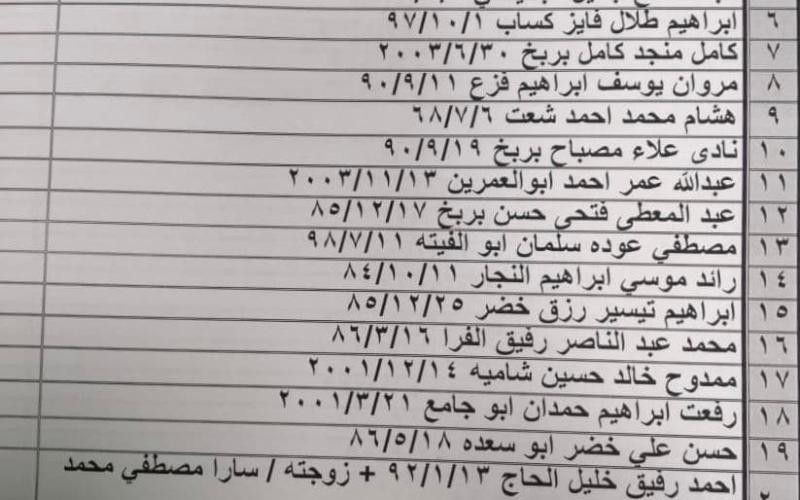 ٦ ابراهيم طلال فايز كساب ٩٧/١٠/١
٧ كامل منجد كامل بربخ ٢٠٠٣/٦/٣٠
٨ مروان يوسف ابراهيم فزع ٩٠/٩/١١
٩ هشام محمد احمد شعت ٦٨/٧/٦
١٠ نادى علاء مصباح بربخ ٩٠/٩/١٩
١١ عبدالله عمر احمد ابوالعمرين ٢٠٠٣/١١/١٣
١٢ عبد المعطى فتحى حسن بربخ ٨٥/١٢/١٧
١٣ مصطفي عوده سلمان ابو الفيته ٩٨/٧/١١
١٤ رائد موسي ابراهيم النجار ٨٤/١٠/١١
١٥ ابراهيم تيسير رزق خضر ٨٥/١٢/٢٥
١٦ محمد عبد الناصر رفيق الفرا ٨٦/٣/١٦
١٧ ممدوح خالد حسين شاميه ٢٠٠١/١٢/١٤
١٨ رفعت ابراهيم حمدان ابو جامع ٢٠٠١/٣/٢١
١٩ حسن علي خضر ابو سعده ٨٦/٥/١٨
احمد رفيق خليل الحاج ٩٢/١/١٣ + زوجته / سارا مصطفي محمد